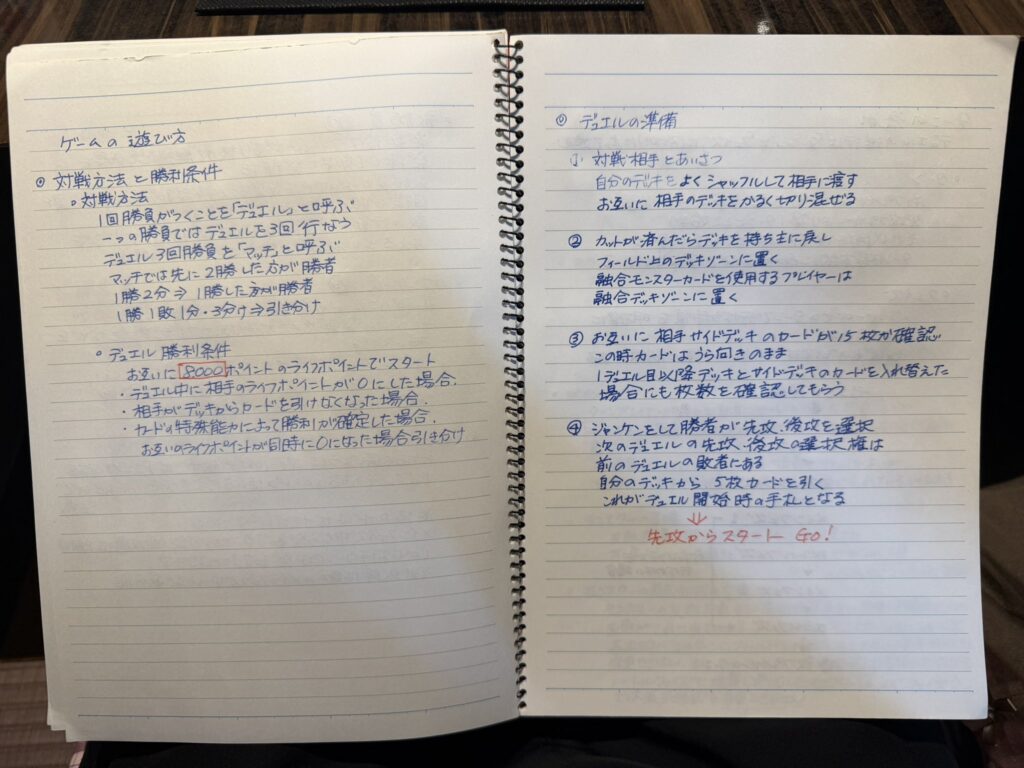 ゲームの遊び方
◎ 対戦方法と勝利条件
・対戦方法
1回勝負がつくことを「デュエル」と呼ぶ
一つの勝負ではデュエルを3回行なう
デュエル3回勝負を「マッチ」と呼ぶ
マッチでは先に2勝した方が勝者
1勝2分⇒1勝した方が勝者
1勝1敗1分・3分け⇒引き分け
・デュエル勝利条件
お互いに「8000」ポイントのライフポイントでスタート
・デュエル中に相手のライフポイントが0にした場合.
・相手がデッキからカードを引けなくなった場合.
・カードの特殊能力によって勝利が確定した場合.
お互いのライフポイントが同時に0になった場合引き分け
◎ デュエルの準備
① 対戦相手とあいさつ
自分のデッキをよくシャッフルして相手に渡す
お互いに相手のデッキをかるく切り混ぜる
② カットが済んだらデッキを持ち主に戻し
フィールド上のデッキゾーンに置く
融合モンスターカードを使用するプレイヤーは
融合デッキゾーンに置く
③ お互いに相手サイドデッキのカードが15枚か確認
この時カードはうら向きのまま
1デュエル目以降デッキとサイドデッキのカードを入れ替えた
場合にも枚数を確認してもらう
④ ジャンケンをして勝者が先攻、後攻を選択
次のデュエルの先攻、後攻の選択権は
前のデュエルの敗者にある
自分のデッキから5枚カードを引く
これがデュエル開始時の手札となる
⇓
先攻からスタート GO!